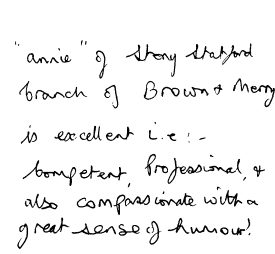 "annie" of Stony Stratford
branch of Brown & Merry
is excellent i.e:-
Competent, Professional, &
also compassionate with a
great sense of humour!